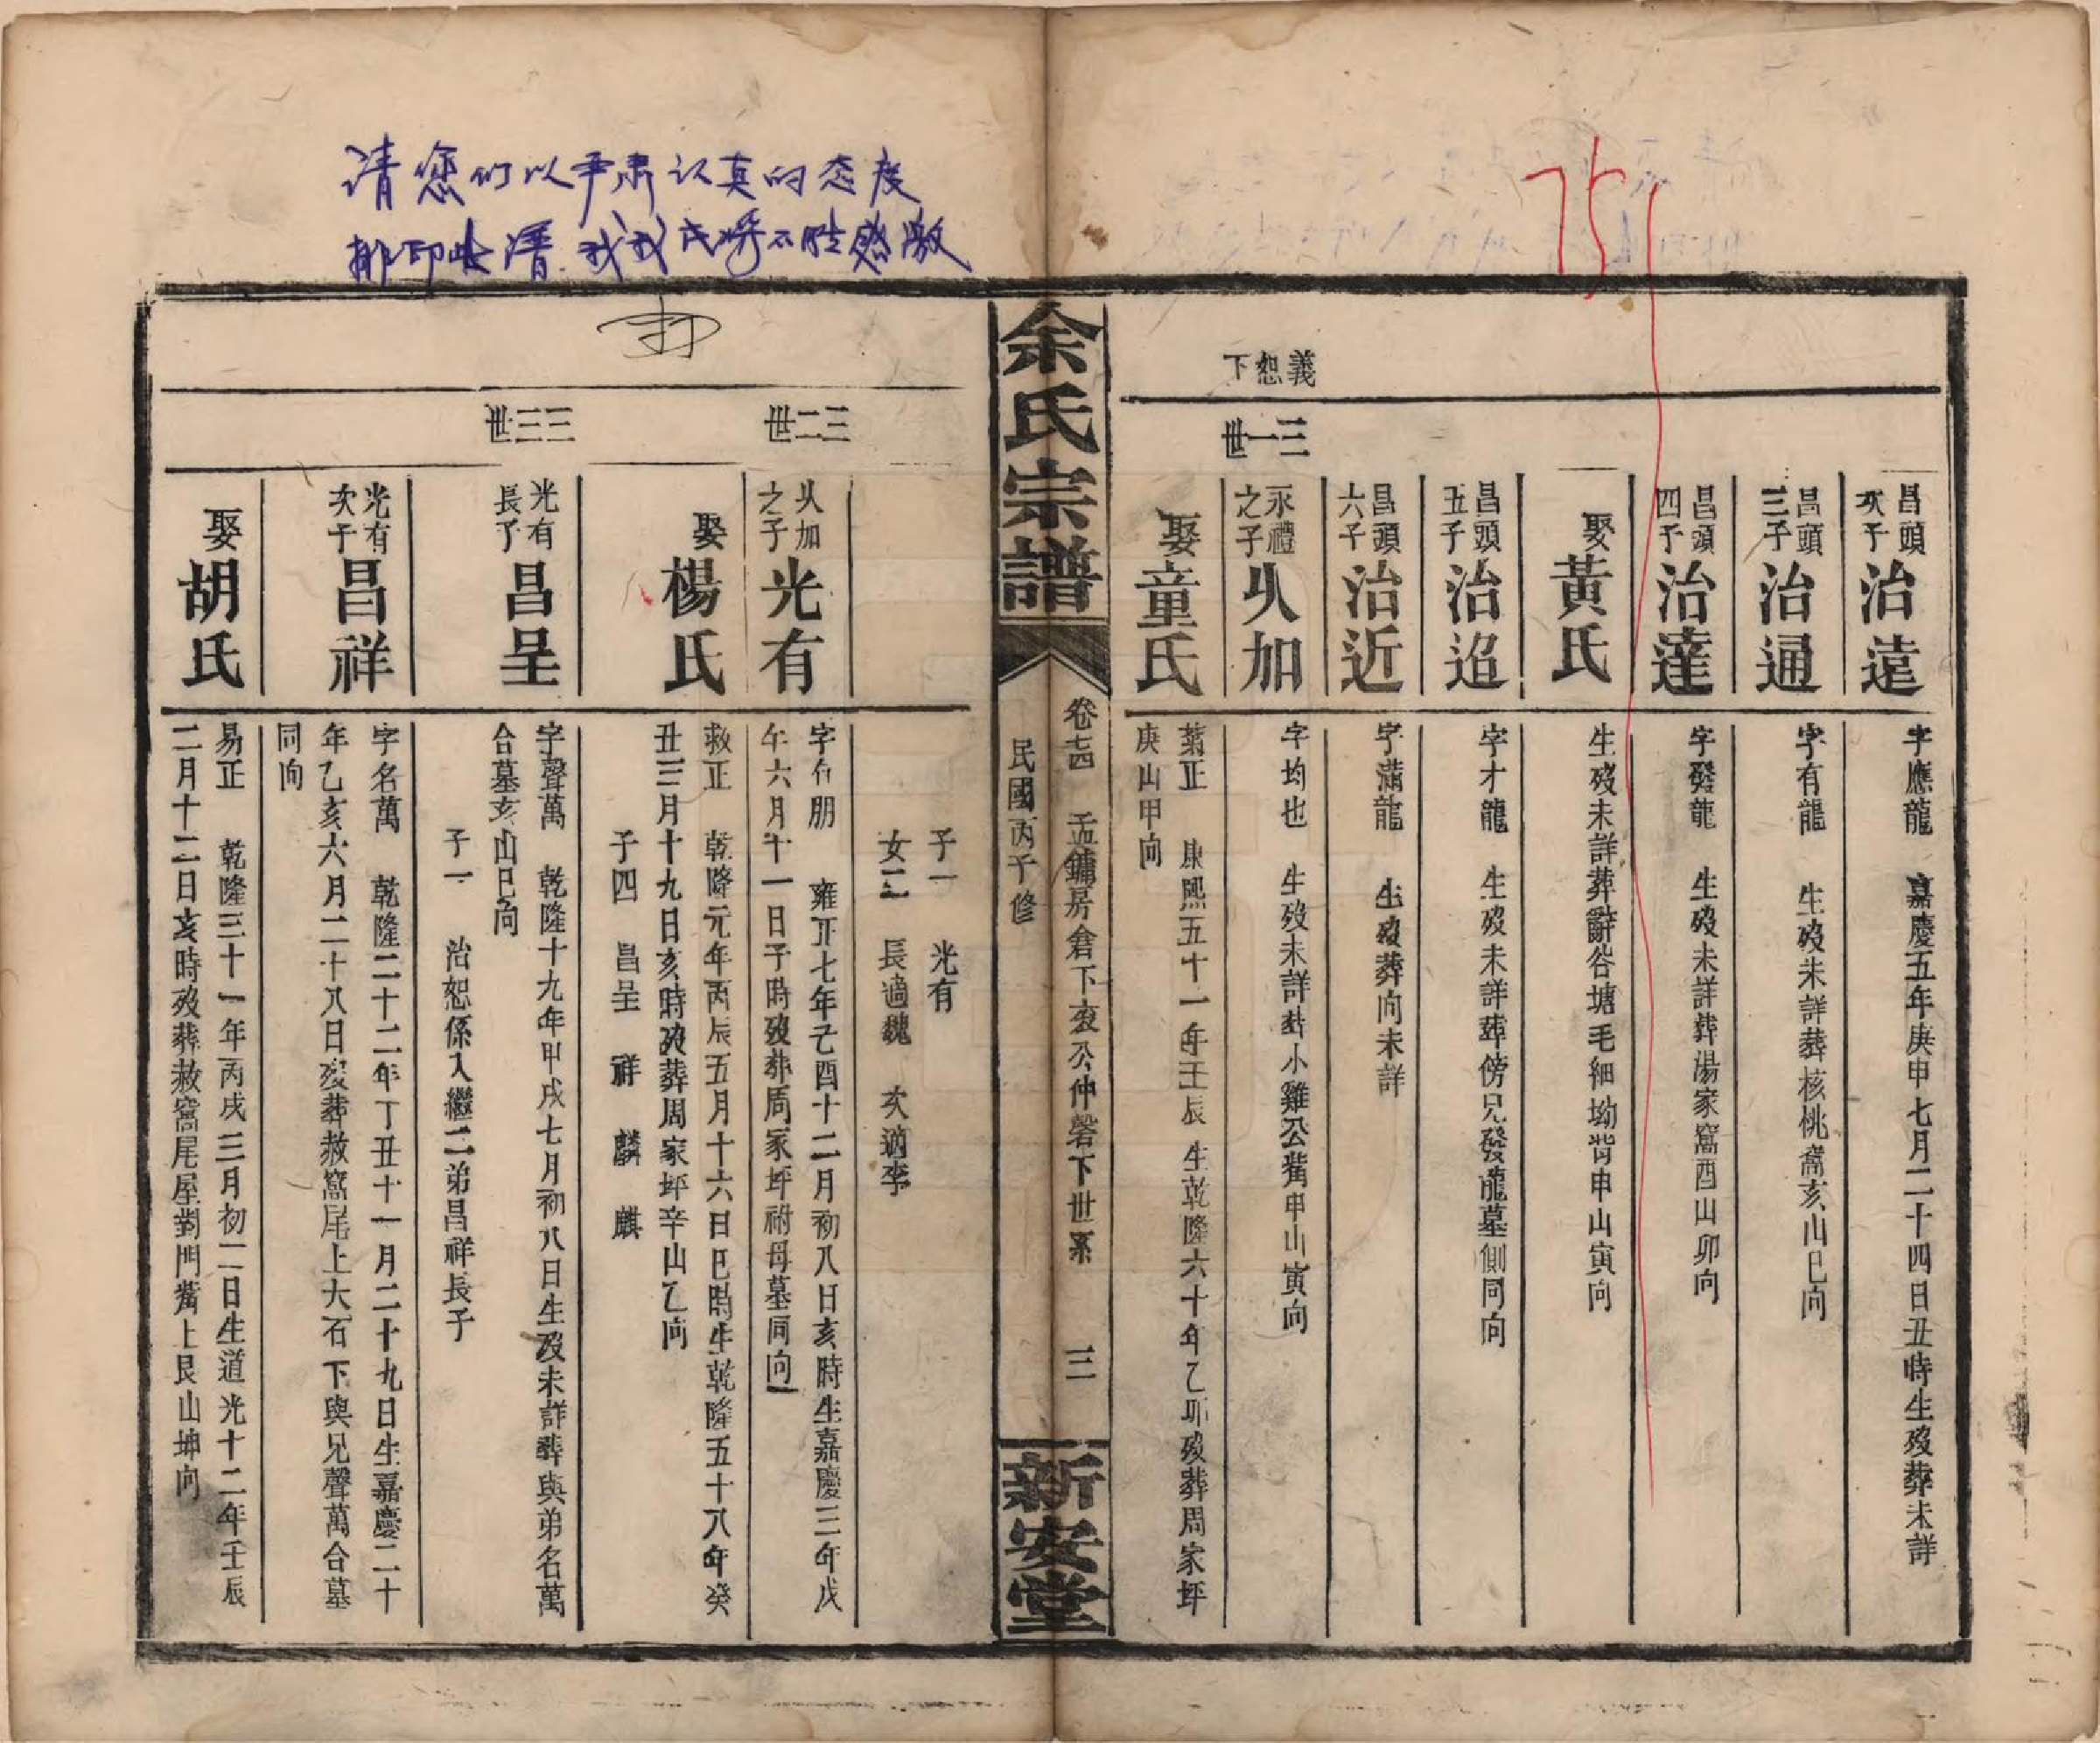 请您们以严肃认真的态度
排印 清 我 氏将不胜感激
751
義恕下
昌頭次子 治遠
字應龍 嘉慶五年庚申七月二十四日丑時生歿葬未詳
昌頭三子 治通
字有龍 生歿未詳葬核桃窩亥山巳向
昌頭四子 治達
字發龍 生歿未詳葬湯家窩酉山卯向
娶黃氏
生歿未詳葬辭谷塘毛細坳背申山寅向
昌頭五子 治迨
字才龍 生歿未詳葬傍兄發龍墓側同向
昌頭六子 治近
字滿龍 生歿葬向未詳
三一世
永禮之子 乆加
字均也 生歿未詳葬小雞公嘴申山寅向
娶童氏
菊正 康熙五十一年壬辰生乾隆六十年乙卯歿葬周家坪
庚山甲向
余氏宗譜
卷 孟鏞房倉下文公仲磬下世系 三
民國丙子修
新安堂
子一 光有
女二 長適魏 次適李
三二世
乆加之子 光有
字有朋 雍正七年己酉十二月初八日亥時生嘉慶三年戊
午六月十一日子時歿葬周家坪祔母墓同向
娶楊氏
救正 乾隆元年丙辰五月十六日巳時生乾隆五十八年癸
丑三月十九日亥時歿葬周家坪辛山乙向
子四 昌呈 祥 麟 麒
三三世
光有長子 昌呈
字聲萬 乾隆十九年甲戌七月初八日生歿未詳葬與弟名萬
合墓亥山巳向
子一 治恕係入繼二弟昌祥長子
光有次子 昌祥
字名萬 乾隆二十二年丁丑十一月二十九日生嘉慶二十
年乙亥六月二十八日歿葬赦窩尾上大石下與兄聲萬合墓
同向
娶胡氏
易正 乾隆三十一年丙戌三月初二日生道光十二年壬辰
二月十二日亥時歿葬赦窩尾屋對門嘴上艮山坤向